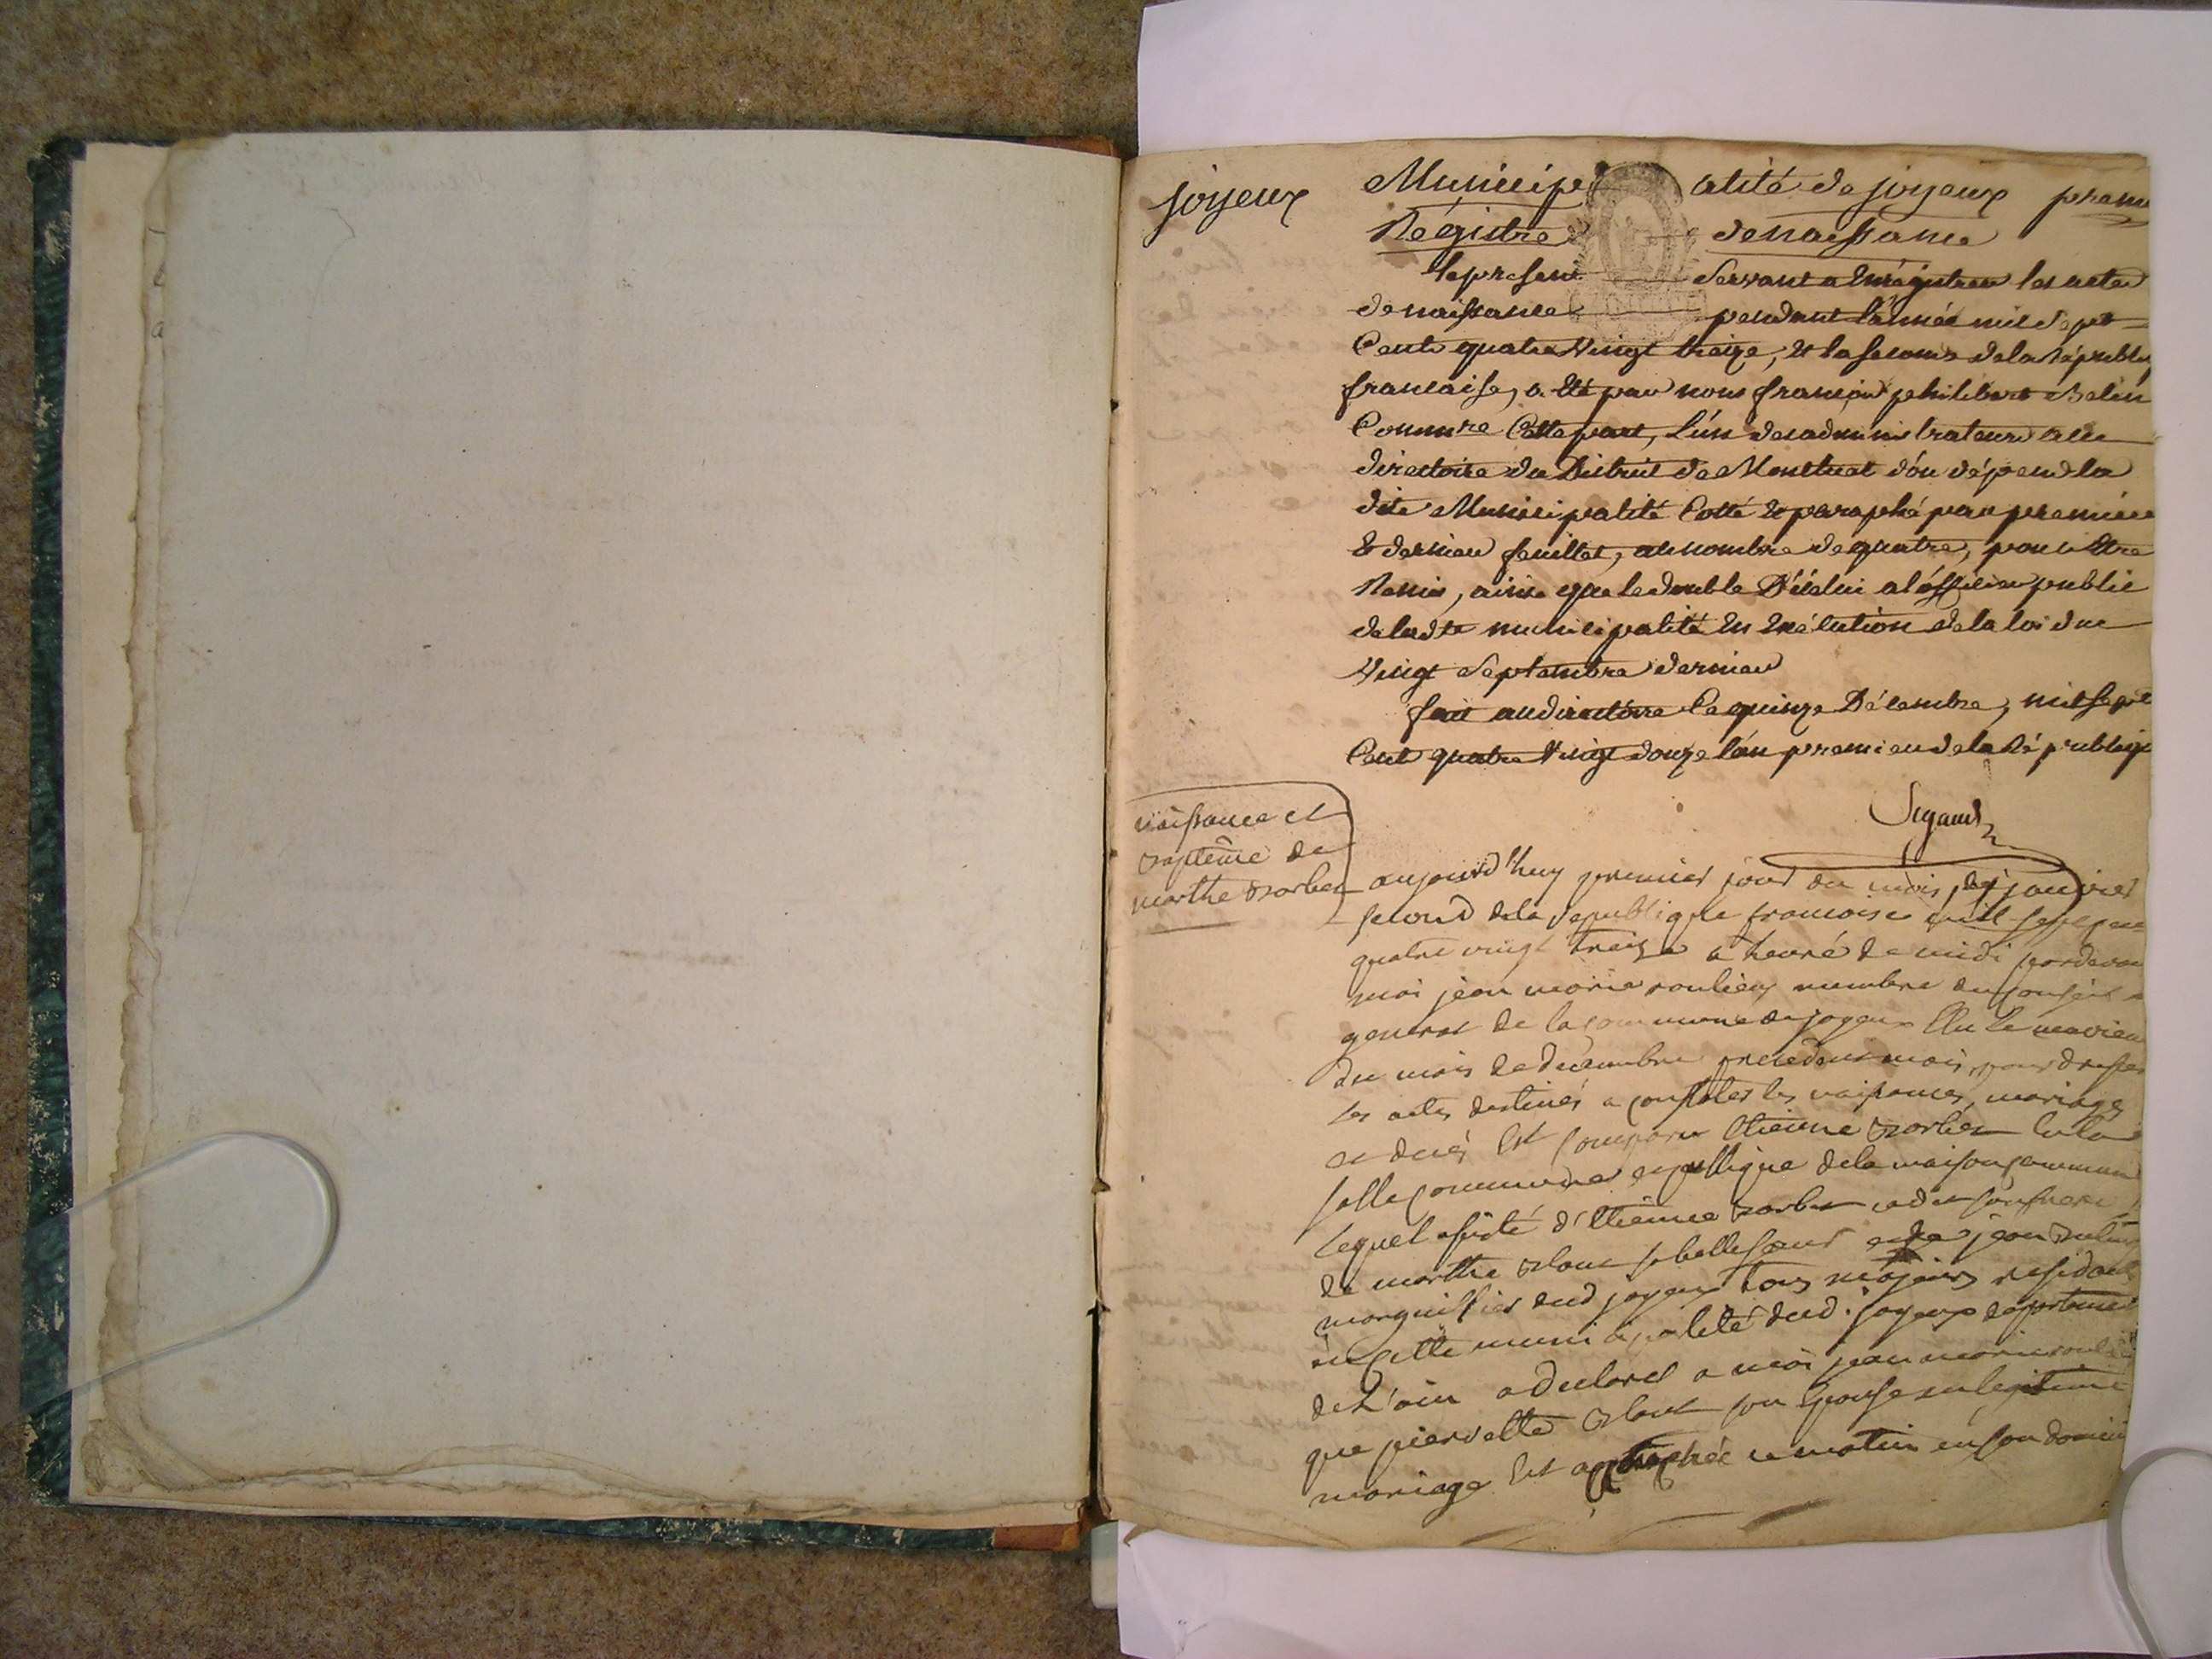 joyeux
Municip alité de joyeux prem
Régistre de naissance
le present Servant a Enrégistrer les actes
de naissance pendant l'année mil sept
Cent quatre Vingt treize, et la seconde de la Républ
francaise, a été par nous françois philibert
Comm.re Cette part, l'un des administrateurs du
directoire du District de Montluel d'ou dépend la
dite Municipalité Cotté & paraphé par premier
& dernier feuillet, au nombre de quatre, pour Etre
Remis, ainsi que le double D'icelui a l'officier public
de lad.te municipalité En Exécution de la loi du
Vingt Septembre dernier
fait au directoire Ce quinze Décembre, mil sept
Cent quatre Vingt douze l'an premier de la Républiq
Sigaud
naissance et
baptême de
marthe barbes
aujourd'huy premier jour du mois de janvier
second de la republique francoise mil sept cen
quatre vingt treize a heure de midi pardevan
moi jean marie roulieu membre du conseil
general de la commune de joyeux Elu le
du mois de decembre precedent mois, pour dresser
les actes destinés a constater les naissances, mariages
et decés Est comparu Etienne barbes En la
salle commune et publique de la maison commune
Lequel assisté d'Etienne barbes cadet son frere
de marthe blanc sa belle soeur et de jean
marguillier dud joyeux tous majeurs residents
en cette municipalité dud. joyeux departement
de L'ain a declaré a moi jean marie roulieu
que pierrette blanc son Epouse en legitime
mariage Est accouchée ce matin en son domici